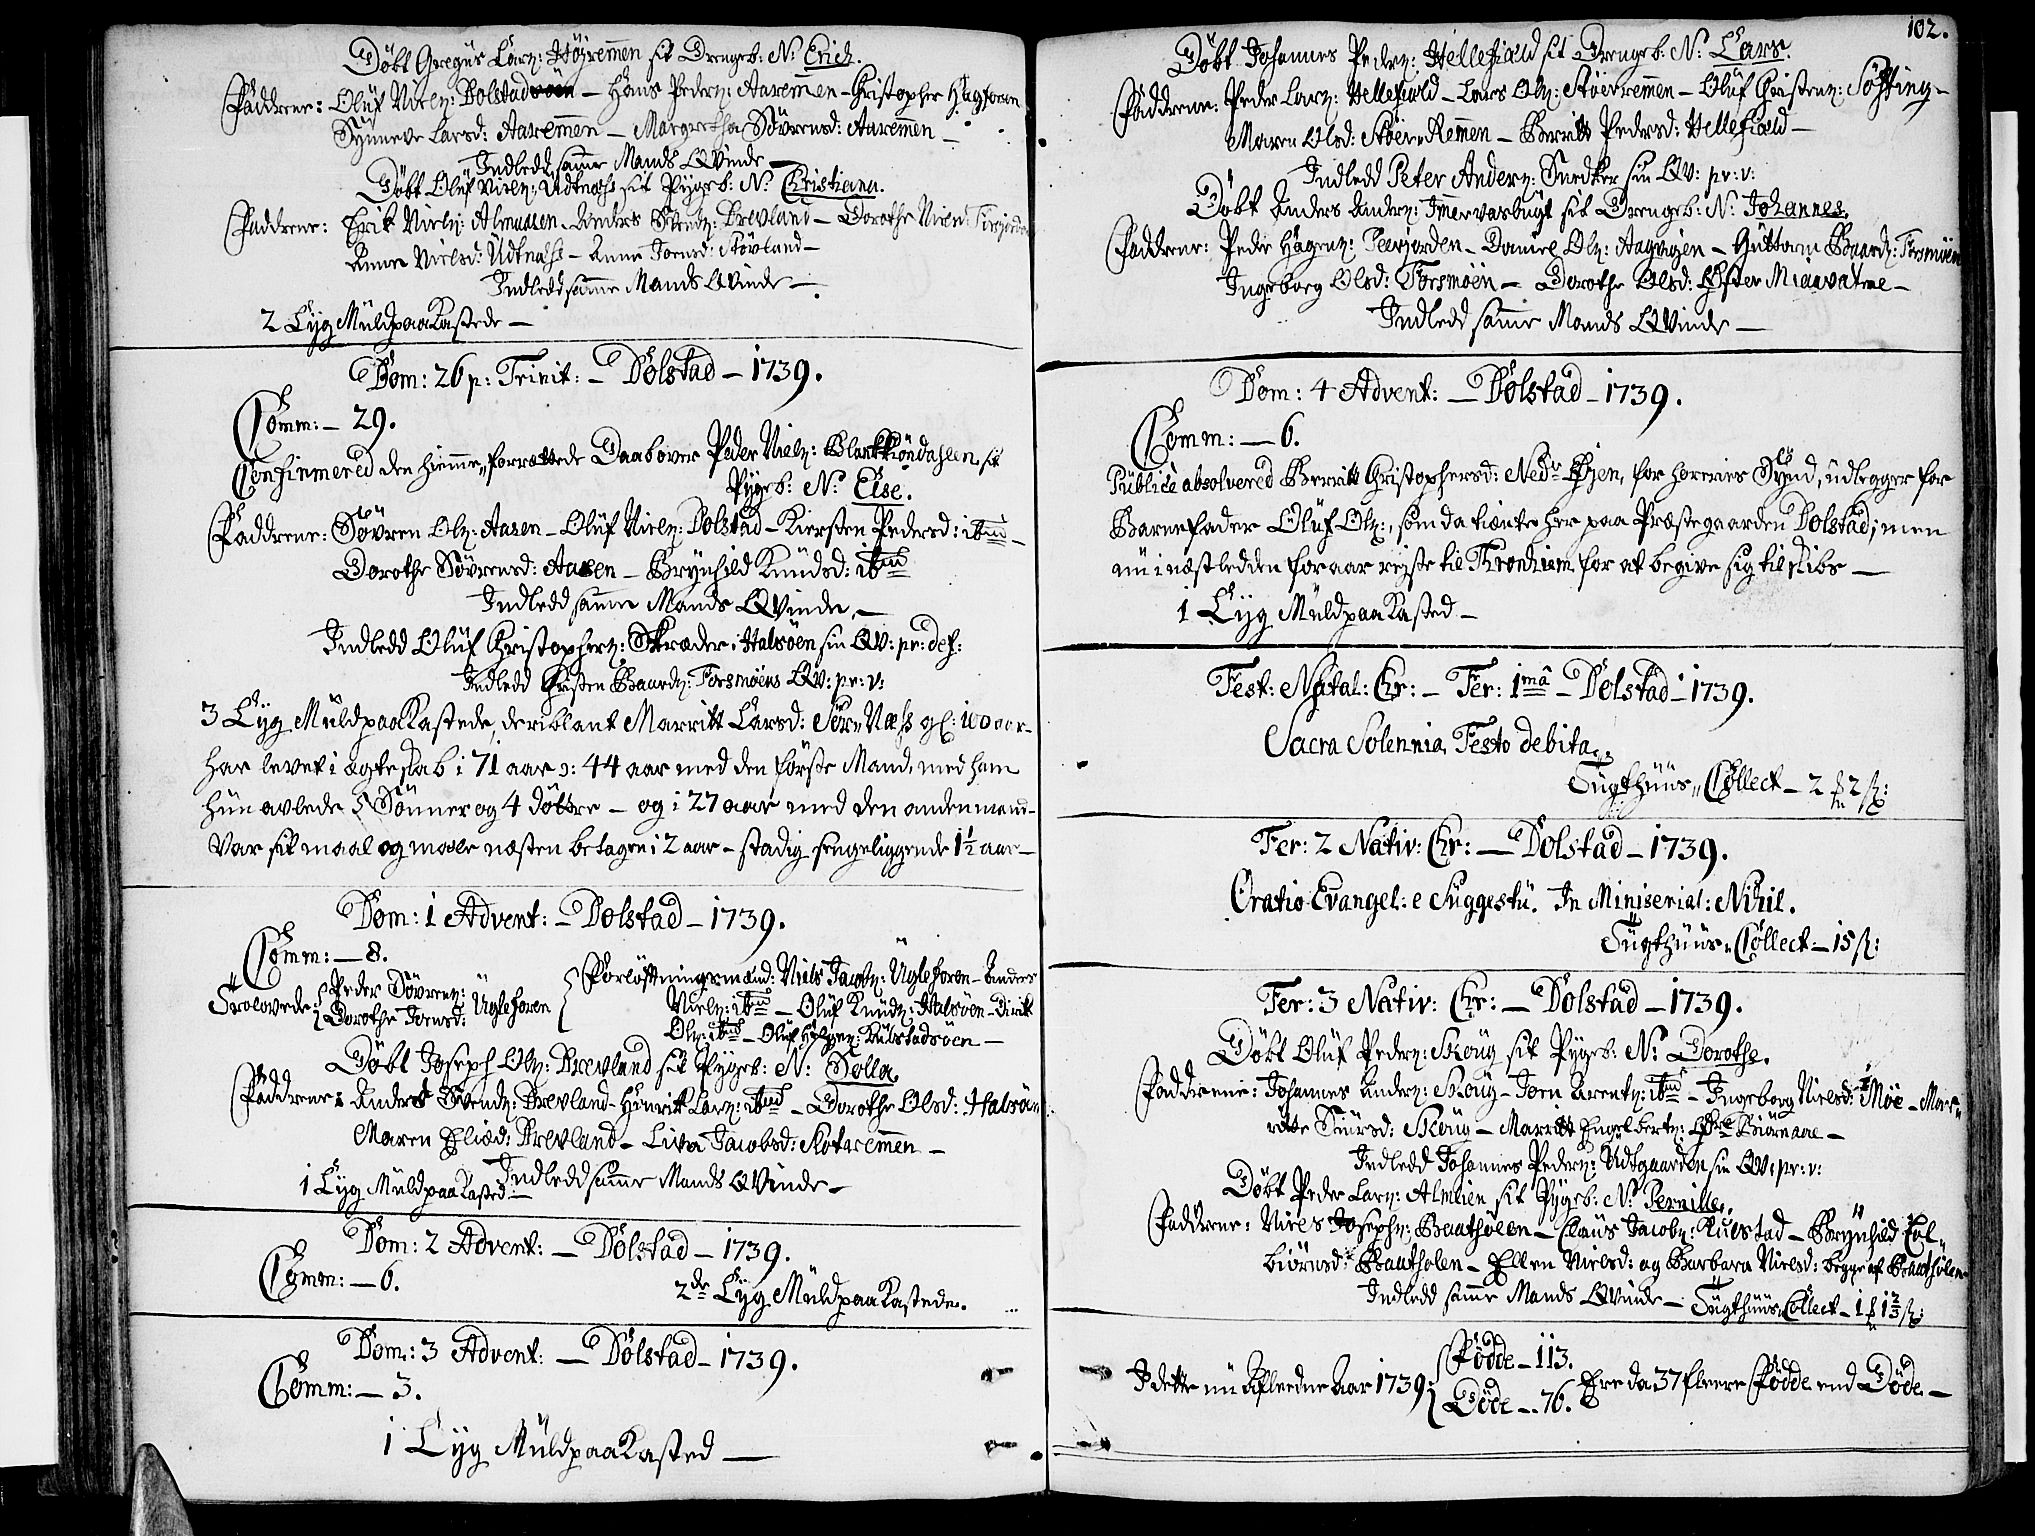 Döbt Gregus Larz: Höjremmen sit Drengeb: N: Erich.
Faddrene: Oluf Nielz: Dolstad – Hans Pederz: Aaremmen – Christopher
Synneve Larsd: Aaremmen – Margretha Sövrensd: Aaremmen –
Indledd samme Mands QVinde –
Döbt Oluf Nielz: Udtnæhs sit Pigeb: N: Christiana.
Faddrene: Erik Nielz: Almaasen – Anders Svendz: Drevland – Dorothe Nielsd:
Anne Nielsd: Udtnæhs – Anne Joensd: Stövland –
Indledd samme Mands QVinde –
2 Lyg Muldpaakastede –
Dom: 26 p: Trinit: – Dolstad – 1739.
Comm: – 29.
Confirmered den hiemme forrættede Daab over Peder Nielz: sit
Pigeb: N: Else.
Faddrene: Sövren Olz: Aasen – Oluf Nielz: Dolstad – Kiersten Pedersd: ibid –
Dorothe Sövrensd: Aasen – Brynhild Knudsd: ibid
Indledd samme Mands QVinde –
Indledd Oluf Christopherz: Skræder i Halsöen sin QV: pr: def:
Indledd Christen Baardz: Forsmöens QV: pr: v:
3 Lyg Muldpaakastede, deriblant Marritt Larsd: Sör-Næss gl: 100 aar –
har levet i ægteskab i 71 aar ɔ: 44 aar med den förste Mand, med ham
hun avlede 5 Sönner og 4 döttre – og i 27 aar med den anden mand –
Var sit maal og mæle næsten betagen i 2 aar – stadig sengeliggende 1½ aar –
Dom: 1 Advent: – Dolstad – 1739.
Comm: – 8.
Trolovede { Peder Sövrenz: Dorothe Joensd: Uglehoren { Forlöftningsmænd: Niels Jacobz: Uglehoren – Anders
Nielz: ibid – Oluf Knudz: Halsöen – Dirik
Olz: ibid – Oluf Kulstadsöen –
Döbt Joseph Olz: Drevland sit Pigeb: N: Solla.
Faddrene: Anders Svendz: Drevland – Henrik Larz: ibid – Dorothe Olsd: Halsöen
Maren Eliæd: Drevland – Liva Jacobsd: Kotremmen –
Indledd samme Mands QVinde –
1 Lyg Muldpaakasted –
Dom: 2 Advent: – Dolstad – 1739.
Comm: – 6.
2de Lyg Muldpaakastede.
Dom: 3 Advent: – Dolstad – 1739.
Comm: – 3.
1 Lyg Muldpaakasted –
102.
Döbt Johannes Pederz: Hellefiæld sit Drengeb: N: Lars.
Faddrene: Peder Larz: Hellefiæld – Lars Olz: Stöevremmen – Oluf Christenz: Söfting –
Maren Olsd: Stöevremmen – Berritt Pedersd: Hellefiæld –
Indledd Peter Anderz: Snedker sin QV: pr: v:
Döbt Anders Anderz: sit Drengeb: N: Johannes.
Faddrene: Peder Hagenz: – Daniel Olz: – Guttorm Baardz: Forsmöen
Ingeborg Olsd: Forsmöen – Dorothe Olsd: Öfter Miaavatne –
Indledd samme Mands QVinde –
Dom: 4 Advent: – Dolstad – 1739.
Comm: – 6.
Publicè absolvered Berritt Christophersd: for horeries Synd, udlegger for
Barnefader Oluf Olz:, som da tiænte her paa Præstegaarden Dolstad; men
nu i næstledden foraar rejste til Tronhiem for at begive sig til skibs –
1 Lyg Muldpaakasted –
Fest: Natal: Chr: – Fer: 1mâ – Dolstad – 1739.
Sacra Solennia Festo debita.
Tugthuus-Collect – 2 2 ß:
Fer: 2 Nativ: Chr: – Dolstad – 1739.
Oratio Evangel: e Suggestu. In Miniserial: Nihil.
Tugthuus-Collect – 15 ß:
Fer: 3 Nativ: Chr: – Dolstad – 1739.
Döbt Oluf Pederz: Skoug sit Pigeb: N: Dorothe.
Faddrene: Johannes Anderz: Skoug – Joen Arentz: ibid – Ingeborg Nielsd: Möe – Mar-
ritte Siursd: Skoug – Marritt Engelbertz: Biörnaae –
Indledd Johannes Pederz: Udtgaarden sin QV: pr: v:
Döbt Peder Larz: Almlien sit Pigeb: N: Pernille.
Faddrene: Niels Josephz: Baatholen – Claus Jacobz: Kulstad – Brynhild Tol-
biörnsd: Baatholen – Ellen Nielsd: og Barbara Nielsd: begge af Baatholen
Indledd samme Mands QVinde – Tugthuus-Collect – 1 1⅔ ß:
I dette nu Afledne Aar 1739: { Födde – 113. Döde – 76. Ere da 37 fleere Födde end Döde –